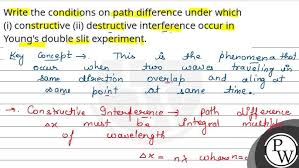 Write the conditions on path difference under which
(i) constructive (ii) destructive interference occur in
Young's double slit experiment.
Key Concept → This is the phenomena that
occur when two waves traveling in
same direction overlap and aling at
same point at same time.
→ Constructive Interference → Path difference
Δx must be integral multiple
of wavelength
Δx = nλ where n=
PW